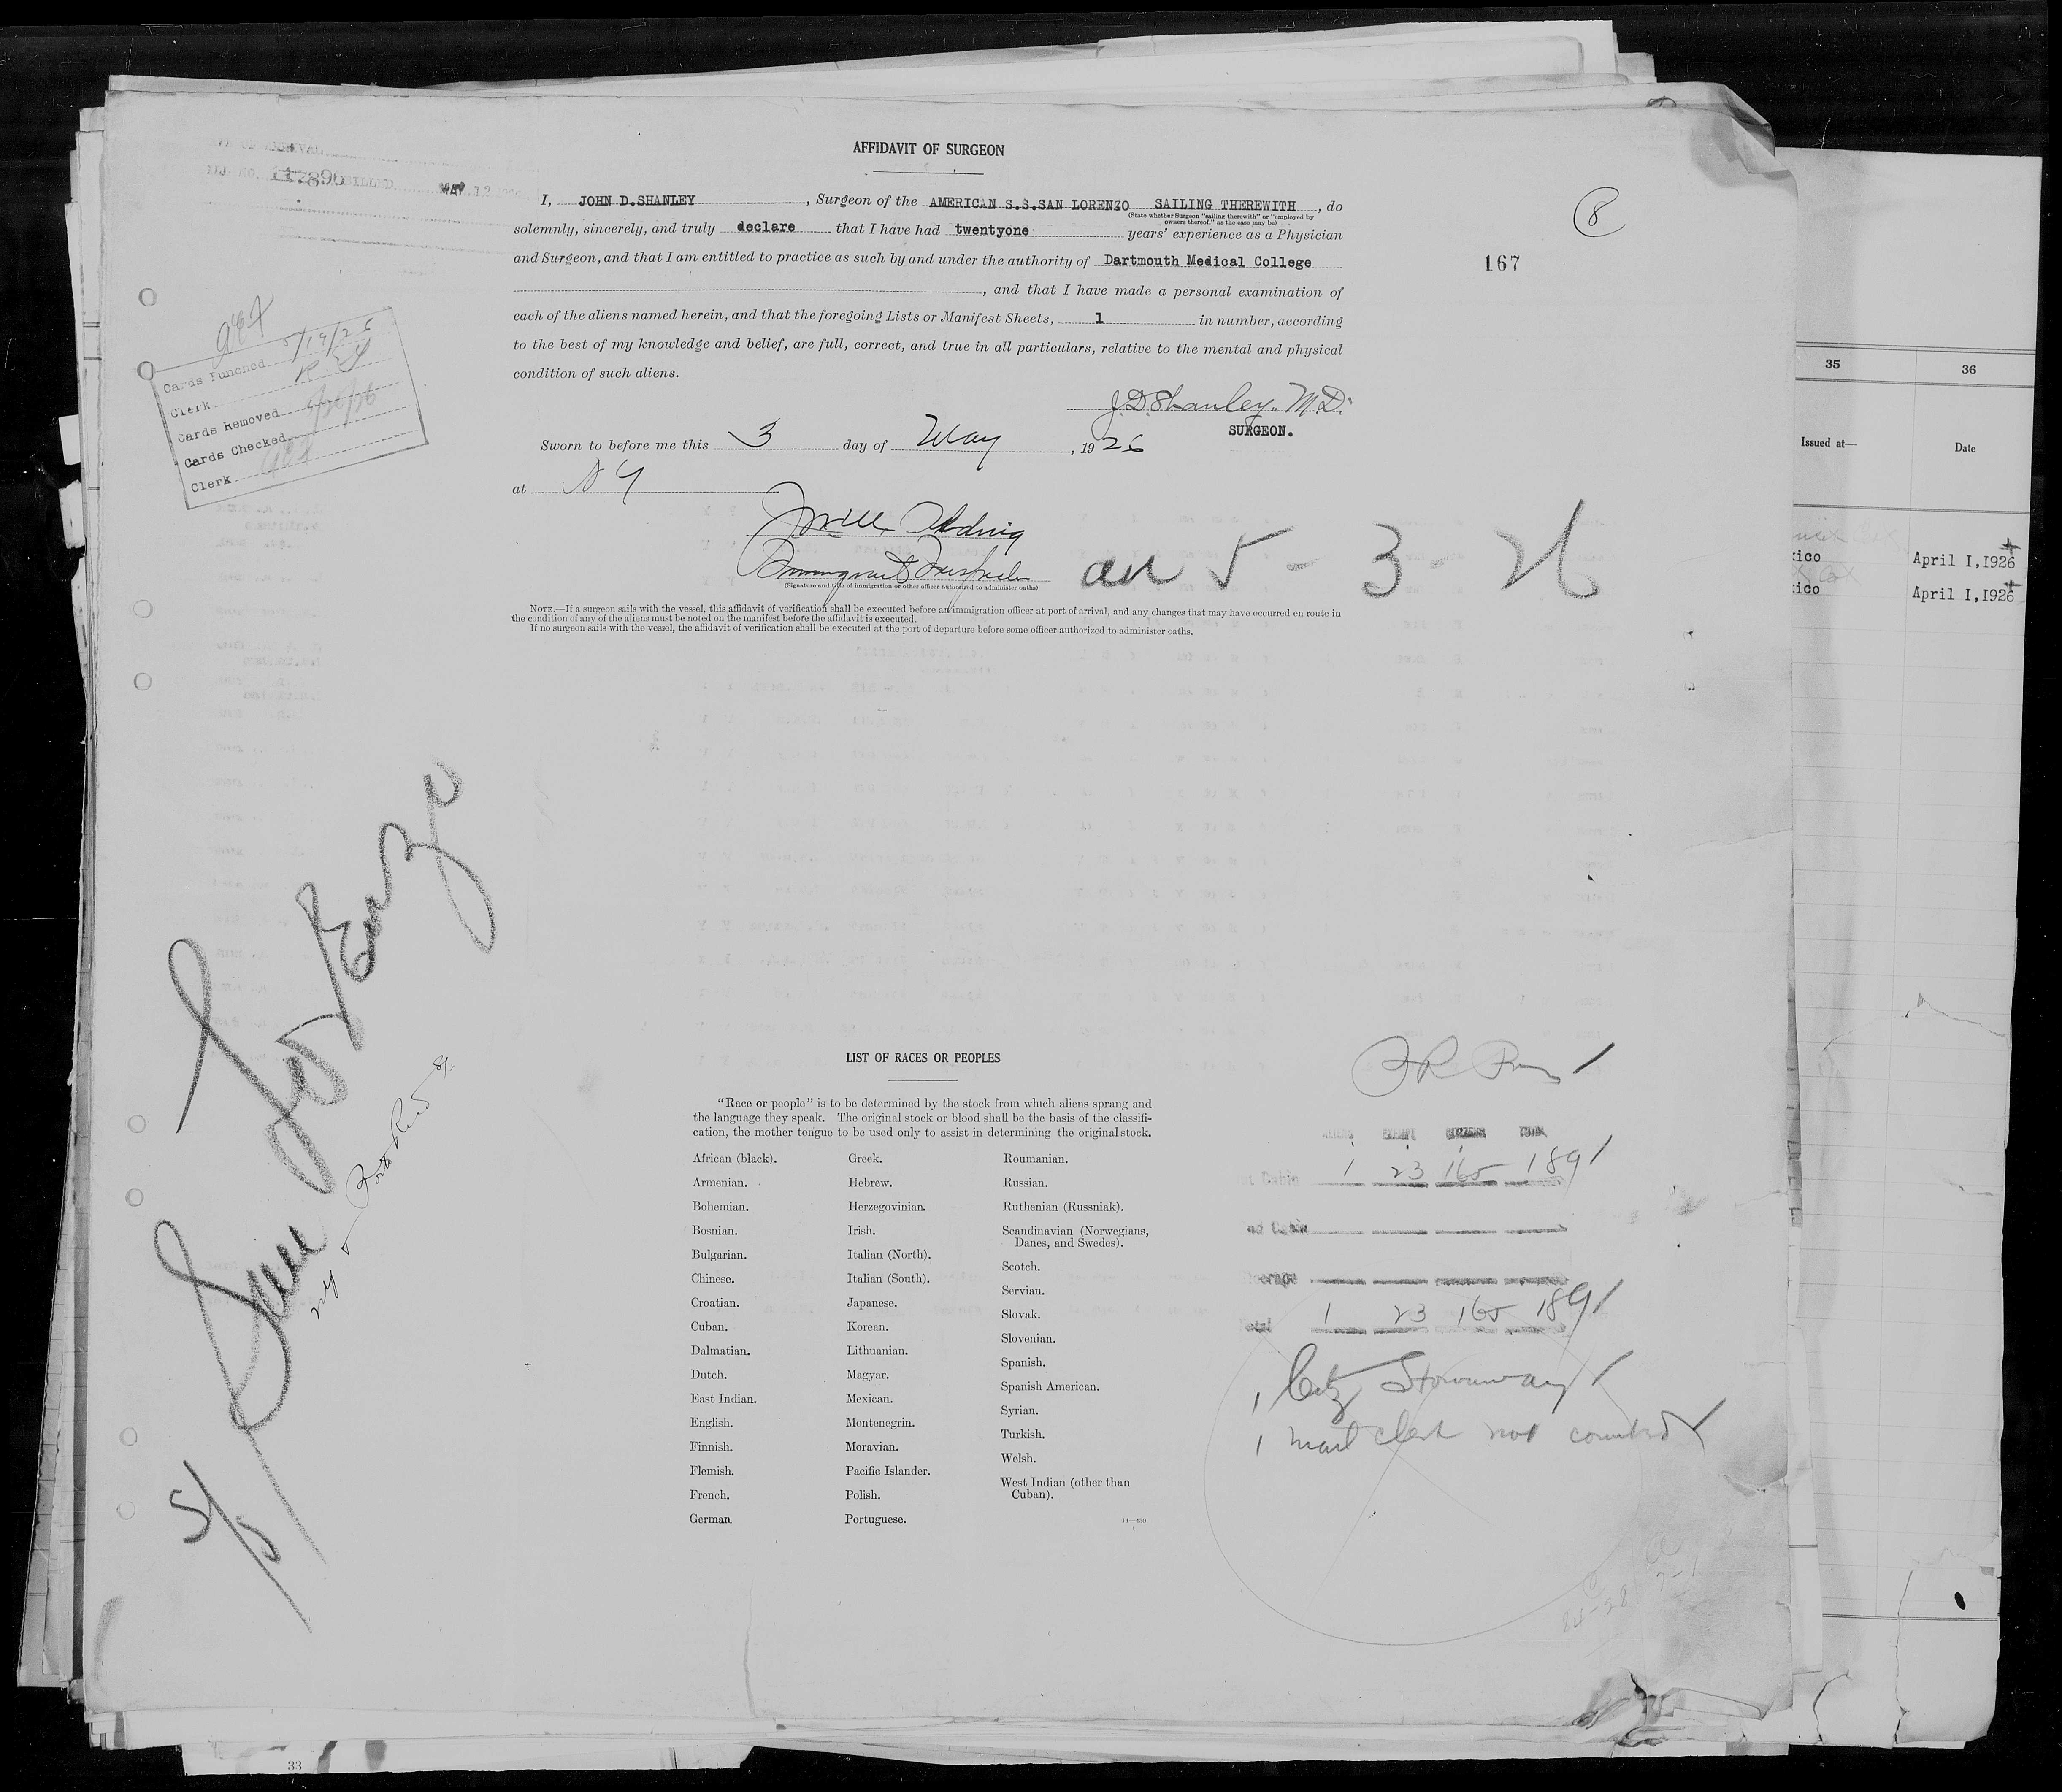 AFFIDAVIT OF SURGEON
147896
MAY 12
8
167
I, JOHN D.SHANLEY, Surgeon of the AMERICAN S.S.SAN LORENZO SAILING THEREWITH, do
(State whether Surgeon "sailing therewith" or "employed by
owners thereof," as the case may be)
solemnly, sincerely, and truly declare that I have had twentyone years' experience as a Physician
and Surgeon, and that I am entitled to practice as such by and under the authority of Dartmouth Medical College
, and that I have made a personal examination of
each of the aliens named herein, and that the foregoing Lists or Manifest Sheets, 1 in number, according
to the best of my knowledge and belief, are full, correct, and true in all particulars, relative to the mental and physical
condition of such aliens.
J.D. Shanley. M.D.
SURGEON.
Sworn to before me this 3 day of May, 1926
at N Y
(Signature and title of immigration or other officer authorized to administer oaths)
5 - 3 - 26
NOTE.—If a surgeon sails with the vessel, this affidavit of verification shall be executed before an immigration officer at port of arrival, and any changes that may have occurred en route in
the condition of any of the aliens must be noted on the manifest before the affidavit is executed.
If no surgeon sails with the vessel, the affidavit of verification shall be executed at the port of departure before some officer authorized to administer oaths.
Cards Punched 5/19/26
Clerk
Cards Removed
Cards Checked
Clerk
35
36
Issued at—
Date
xico April 1,1926
xico April 1,1926
San Lorenzo
5/3
NY
Porto Rico
LIST OF RACES OR PEOPLES
"Race or people" is to be determined by the stock from which aliens sprang and
the language they speak. The original stock or blood shall be the basis of the classifi-
cation, the mother tongue to be used only to assist in determining the original stock.
African (black).
Armenian.
Bohemian.
Bosnian.
Bulgarian.
Chinese.
Croatian.
Cuban.
Dalmatian.
Dutch.
East Indian.
English.
Finnish.
Flemish.
French.
German.
Greek.
Hebrew.
Herzegovinian.
Irish.
Italian (North).
Italian (South).
Japanese.
Korean.
Lithuanian.
Magyar.
Mexican.
Montenegrin.
Moravian.
Pacific Islander.
Polish.
Portuguese.
Roumanian.
Russian.
Ruthenian (Russniak).
Scandinavian (Norwegians,
Danes, and Swedes).
Scotch.
Servian.
Slovak.
Slovenian.
Spanish.
Spanish American.
Syrian.
Turkish.
Welsh.
West Indian (other than
Cuban).
14—430
ALIENS EXEMPT CITIZENS TOTAL
1st Cabin 1 23 165 189
2nd Cabin
Steerage
Total 1 23 165 189
1 Citz Stowaway
1 mail clerk not counted
33